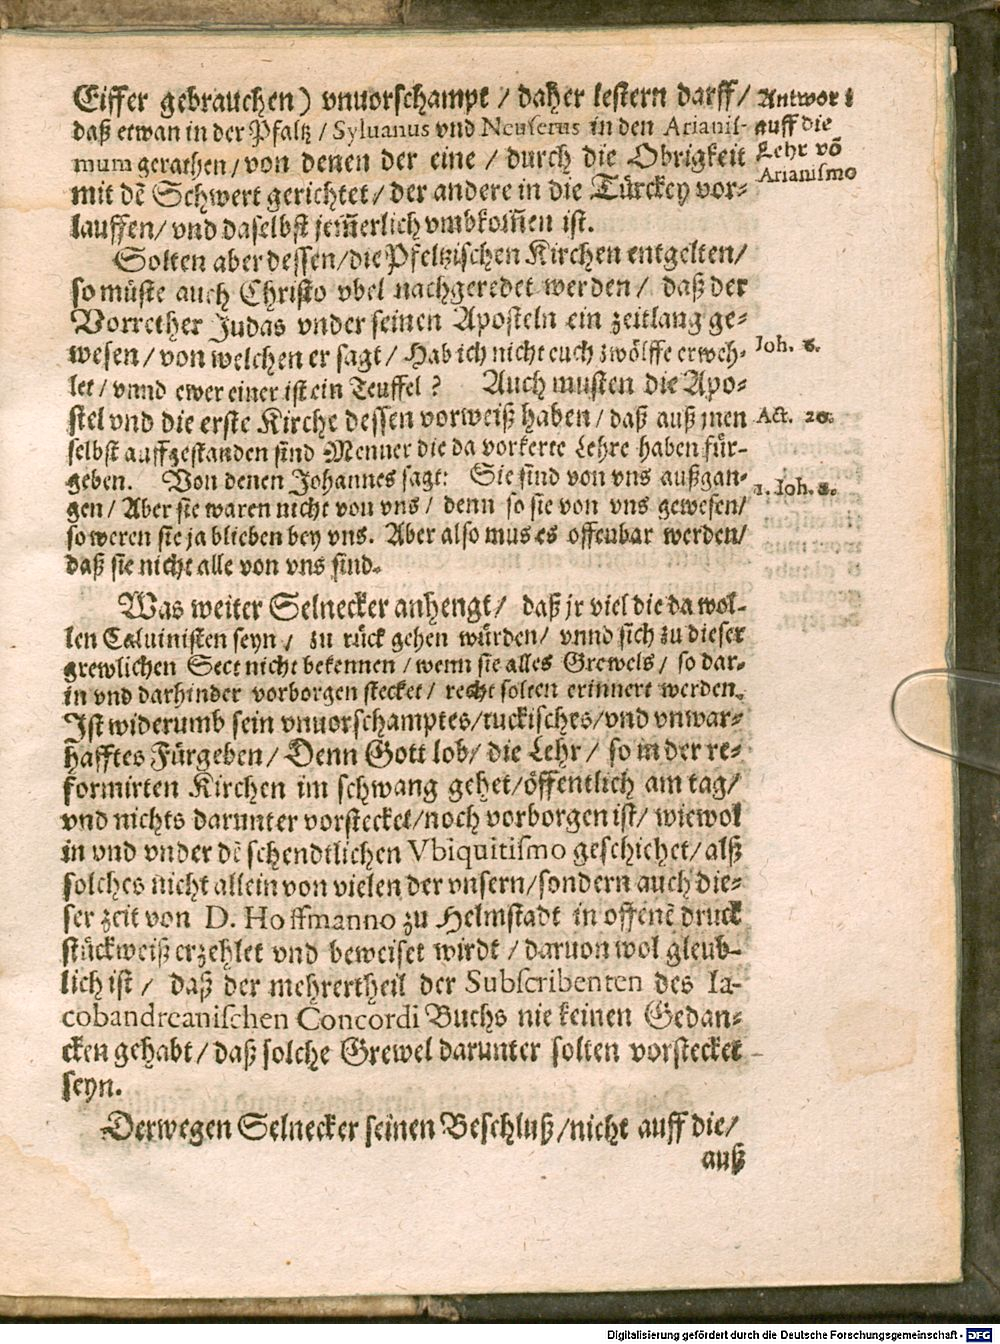 Eiffer gebrauchen) vnuorschampt / daher lestern darff/
daß etwan in der Pfaltz / Syluanus vnd Neuserus in den Arianis-
mum gerathen / von denen der eine / durch die Obrigkeit
mit dẽ Schwert gerichtet / der andere in die Türckey vor-
lauffen / vnd daselbst jem̃erlich vmbkom̃en ist.
Antwort
auff die
Lehr võ
Arianismo
Solten aber dessen / die Pfeltzischen Kirchen entgelten/
so müste auch Christo vbel nachgeredet werden / daß der
Vorrether Judas vnder seinen Aposteln ein zeitlang ge-
wesen / von welchen er sagt / Hab ich nicht euch zwölffe erweh-
let / vnnd ewer einer ist ein Teuffel ? Auch musten die Apo-
stel vnd die erste Kirche dessen vorweiß haben / daß auß jnen
selbst auffgestanden sind Menner die da vorkerte Lehre haben für-
geben. Von denen Johannes sagt: Sie sind von vns außgan-
gen / Aber sie waren nicht von vns / denn so sie von vns gewesen/
so weren sie ja blieben bey vns. Aber also mus es offenbar werden/
daß sie nicht alle von vns sind.
Joh. 6.
Act. 20.
1. Joh. 2.
Was weiter Selnecker anhengt / daß jr viel die da wol-
len Caluinisten seyn / zu rück gehen würden / vnnd sich zu dieser
grewlichen Sect nicht bekennen / wenn sie alles Grewels / so dar-
in vnd darhinder vorborgen stecket / recht solten erinnert werden.
Ist widerumb sein vnuorschamptes / tuckisches / vnd vnwar-
hafftes Fürgeben / Denn Gott lob / die Lehr / so in der re-
formirten Kirchen im schwang gehet / öffentlich am tag/
vnd nichts darunter vorstecket / noch vorborgen ist / wiewol
in vnd vnder dẽ schendtlichen Vbiquitismo geschichet / alß
solches nicht allein von vielen der vnsern / sondern auch die-
ser zeit von D. Hoffmanno zu Helmstadt in offenẽ druck
stückweiß erzehlet vnd beweiset wirdt / daruon wol gleub-
lich ist / daß der mehrertheil der Subscribenten des Ia-
cobandreanischen Concordi Buchs nie keinen Gedan-
cken gehabt / daß solche Grewel darunter solten vorstecket
seyn.
Derwegen Selnecker seinen Beschluß / nicht auff die/
auß
Digitalisierung gefördert durch die Deutsche Forschungsgemeinschaft - DFG